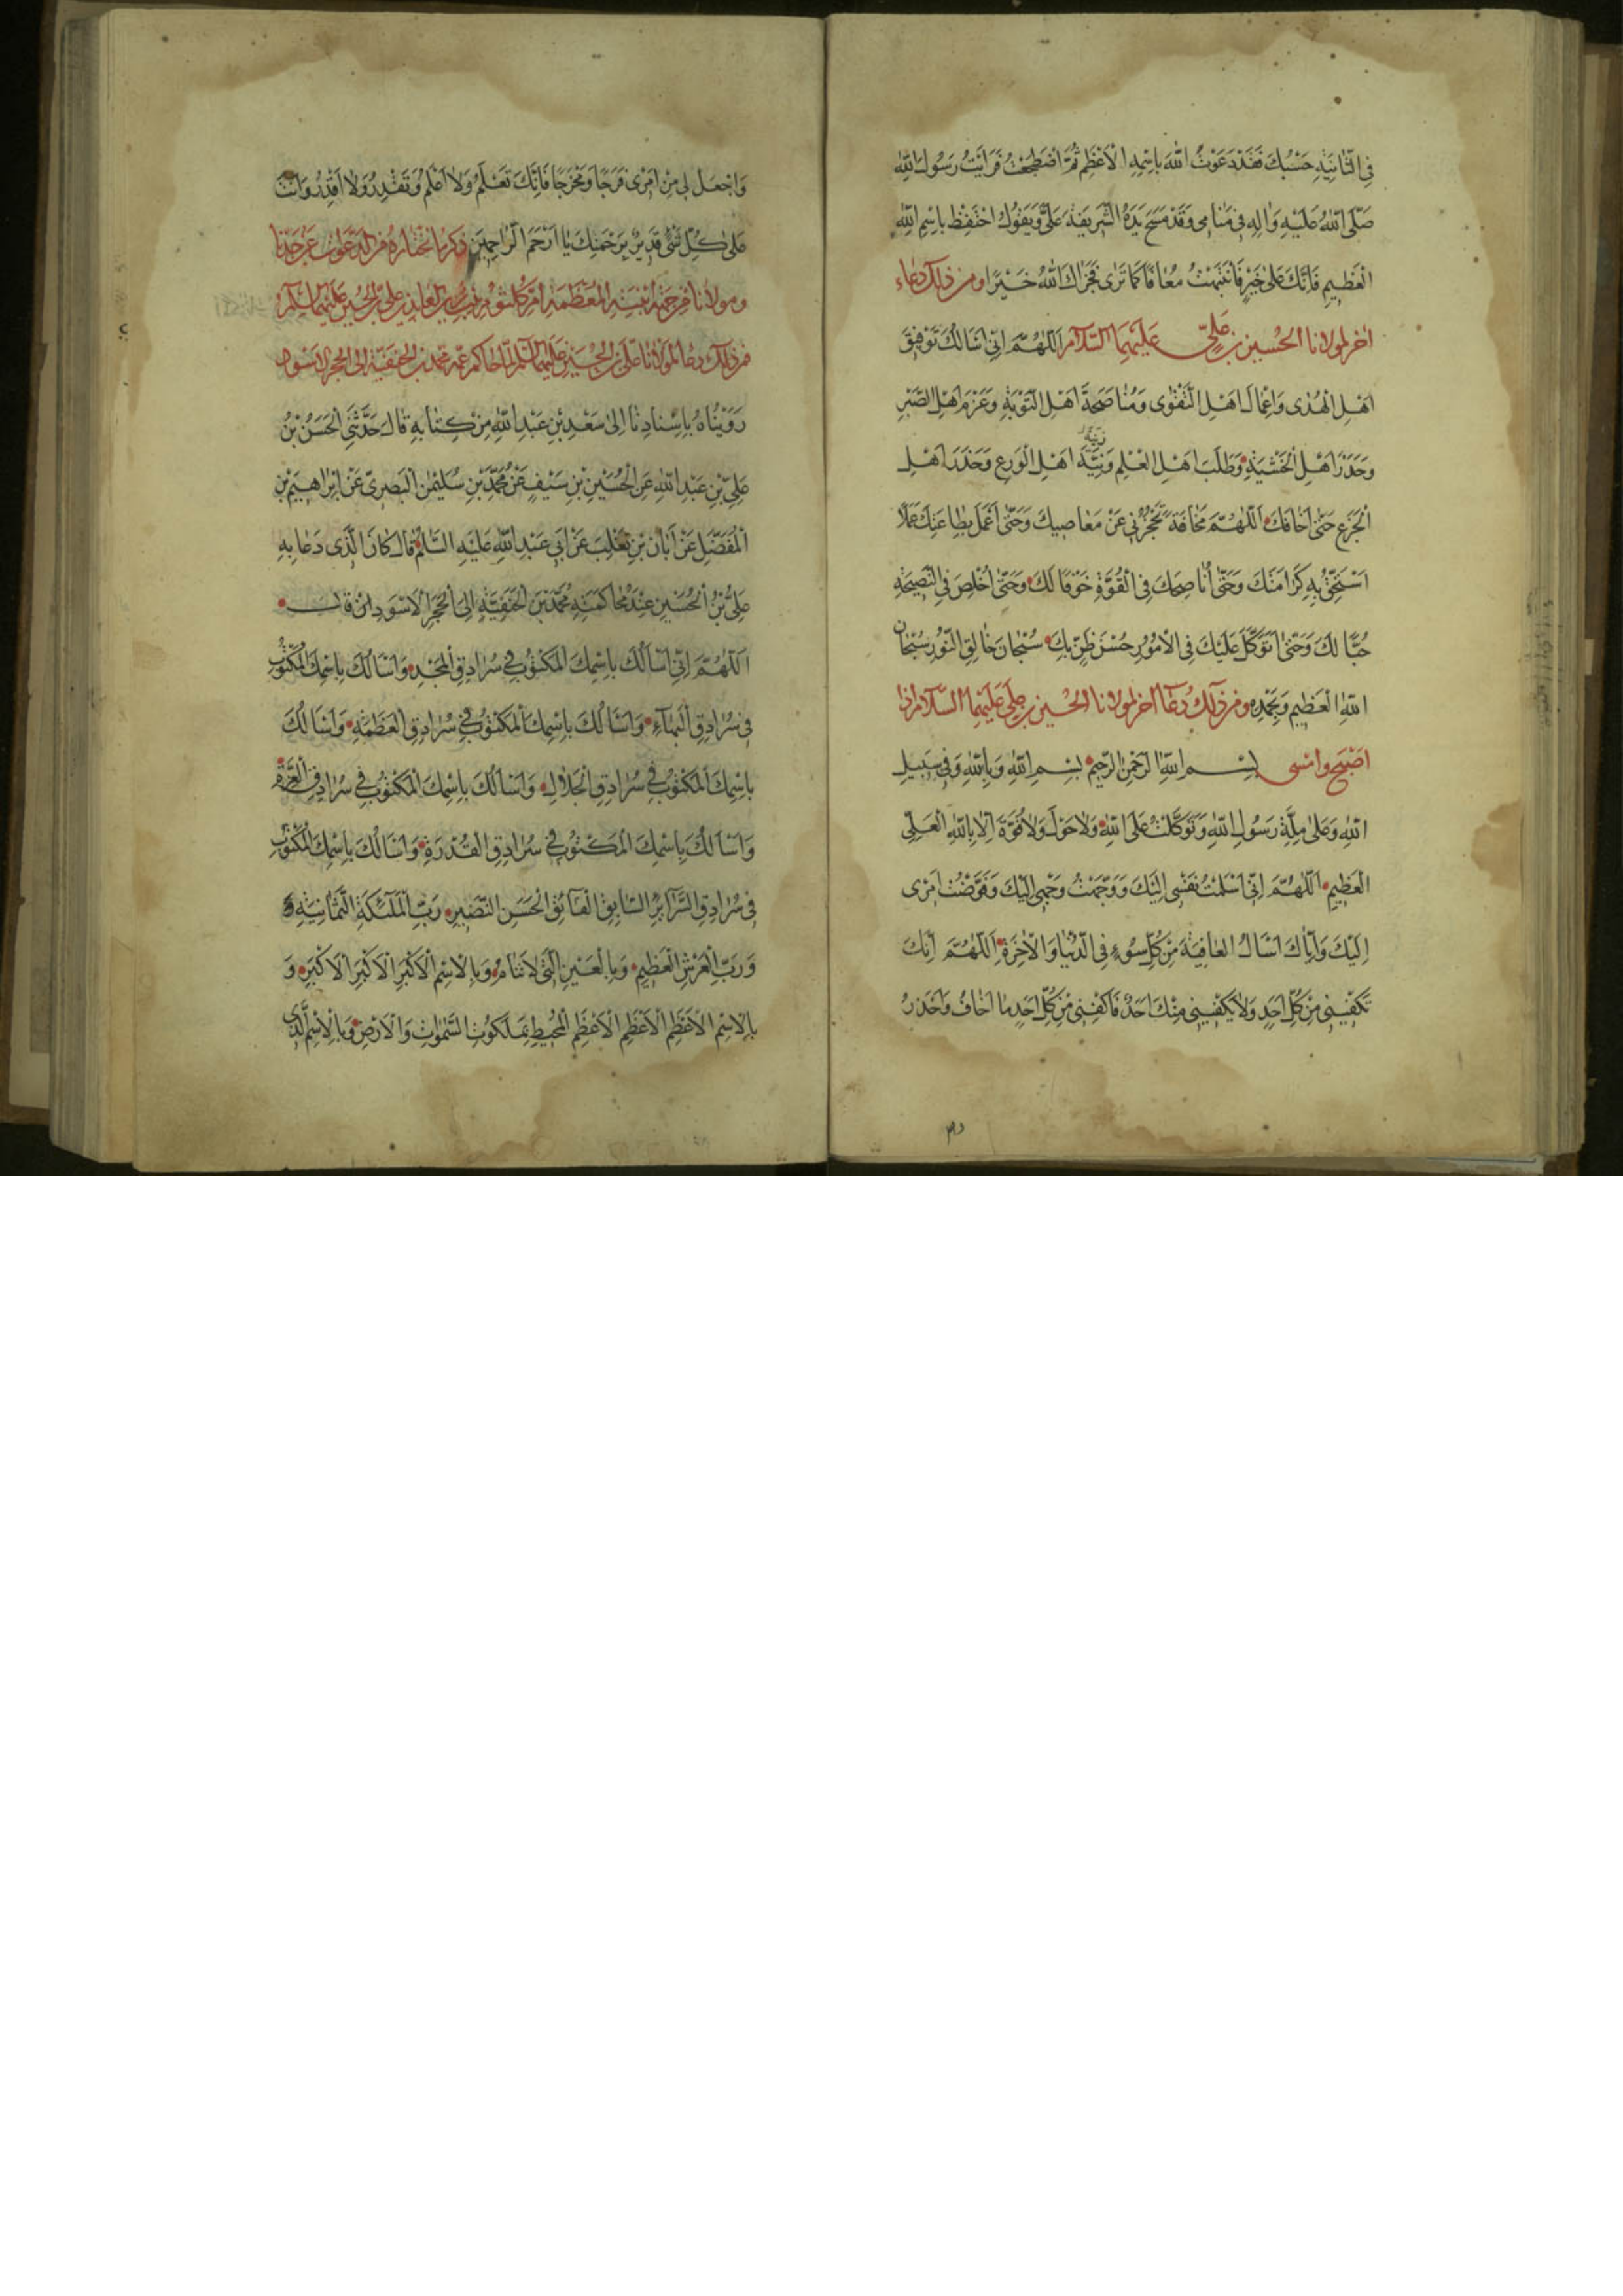 فِي الثَّانِيَةِ حَسْبُكَ فَقَدْ دَعَوْتَ اللهَ بِاسْمِهِ الْاَعْظَمِ ثُمَّ اضْطَجَعْتُ فَرَاَيْتُ رَسُولَ اللهِ
صَلَّى اللهُ عَلَيْهِ وَاٰلِهِ فِي مَنَامِي وَقَدْ مَسَحَ يَدَهُ الشَّرِيفَةَ عَلَيَّ وَيَقُولُ احْتَفِظْ بِاسْمِ اللهِ
الْعَظِيمِ فَاِنَّكَ عَلَى خَيْرٍ فَانْتَبَهْتُ مُعَافًا كَمَا تَرَى فَجَزَاكَ اللهُ خَيْرًا ومن ذلك دعاء
اخر لمولانا الحسين بن عَلِيٍّ عَلَيْهِمَا السَّلَامُ اَللّٰهُمَّ اِنِّي اَسْاَلُكَ تَوْفِيقَ
اَهْلِ الْهُدَى وَاَعْمَالَ اَهْلِ التَّقْوَى وَمُنَاصَحَةَ اَهْلِ التَّوْبَةِ وَعَزْمَ اَهْلِ الصَّبْرِ
وَحَذَرَ اَهْلِ الْخَشْيَةِ وَطَلَبَ اَهْلِ الْعِلْمِ وَنِيَّةَ اَهْلِ الْوَرَعِ وَحَذَرَ اَهْلِ
الْجَزَعِ حَتَّى اَخَافَكَ اَللّٰهُمَّ مَخَافَةً تَحْجُزُنِي عَنْ مَعَاصِيكَ وَحَتَّى اَعْمَلَ بِطَاعَتِكَ عَمَلًا
اَسْتَحِقُّ بِهِ كَرَامَتَكَ وَحَتَّى اُنَاصِحَكَ فِي الْقُوَّةِ خَوْفًا لَكَ وَحَتَّى اُخْلِصَ فِي النَّصِيحَةِ
حُبًّا لَكَ وَحَتَّى اَتَوَكَّلَ عَلَيْكَ فِي الْاُمُورِ حُسْنَ ظَنٍّ بِكَ سُبْحَانَ خَالِقِ النُّورِ سُبْحَانَ
اللهِ الْعَظِيمِ وَبِحَمْدِهِ ومن ذلك دعاء اخر لمولانا الحسين بن علي عليهما السلام اذا
اصبح وامسى بِسْمِ اللهِ الرَّحْمٰنِ الرَّحِيمِ بِسْمِ اللهِ وَبِاللهِ وَفِي سَبِيلِ
اللهِ وَعَلَى مِلَّةِ رَسُولِ اللهِ وَتَوَكَّلْتُ عَلَى اللهِ وَلَا حَوْلَ وَلَا قُوَّةَ اِلَّا بِاللهِ الْعَلِيِّ
الْعَظِيمِ اَللّٰهُمَّ اِنِّي اَسْلَمْتُ نَفْسِي اِلَيْكَ وَوَجَّهْتُ وَجْهِي اِلَيْكَ وَفَوَّضْتُ اَمْرِي
اِلَيْكَ وَاِيَّاكَ اَسْاَلُ الْعَافِيَةَ مِنْ كُلِّ سُوءٍ فِي الدُّنْيَا وَالْاٰخِرَةِ اَللّٰهُمَّ اِنَّكَ
تَكْفِينِي مِنْ كُلِّ اَحَدٍ وَلَا يَكْفِينِي مِنْكَ اَحَدٌ فَاكْفِنِي مِنْ كُلِّ اَحَدٍ مَا اَخَافُ وَاَحْذَرُ
وَاجْعَلْ لِي مِنْ اَمْرِي فَرَجًا وَمَخْرَجًا فَاِنَّكَ تَعْلَمُ وَلَا اَعْلَمُ وَتَقْدِرُ وَلَا اَقْدِرُ وَاَنْتَ
عَلَى كُلِّ شَيْءٍ قَدِيرٌ بِرَحْمَتِكَ يَا اَرْحَمَ الرَّاحِمِينَ ذكر ما نختاره من الدعوات عن جدنا
ومولانا من جهة ابنته المعظمة ام كلثوم زين العابدين علي بن الحسين عليهما السلام
فمن ذلك دعاء لمولانا علي بن الحسين عليهما السلام لما حاكم عمه محمد بن الحنفية الى الحجر الاسود
رَوَيْنَاهُ بِاِسْنَادِنَا اِلَى سَعْدِ بْنِ عَبْدِ اللهِ مِنْ كِتَابِهِ قَالَ حَدَّثَنِي الْحَسَنُ بْنُ
عَلِيِّ بْنِ عَبْدِ اللهِ عَنِ الْحُسَيْنِ بْنِ سَيْفٍ عَنْ مُحَمَّدِ بْنِ سُلَيْمٰنَ الْبَصْرِيِّ عَنْ اِبْرَاهِيمَ بْنِ
الْمُفَضَّلِ عَنْ اَبَانِ بْنِ تَغْلِبَ عَنْ اَبِي عَبْدِ اللهِ عَلَيْهِ السَّلَمُ قَالَ كَانَ الَّذِي دَعَا بِهِ
عَلِيُّ بْنُ الْحُسَيْنِ عِنْدَ مُحَاكَمَتِهِ مُحَمَّدَ بْنَ الْحَنَفِيَّةِ اِلَى الْحَجَرِ الْاَسْوَدِ اَنْ قَالَ
اَللّٰهُمَّ اِنِّي اَسْاَلُكَ بِاسْمِكَ الْمَكْتُوبِ فِي سُرَادِقِ الْمَجْدِ وَاَسْاَلُكَ بِاسْمِكَ الْمَكْتُوبِ
فِي سُرَادِقِ الْبَهَاءِ وَاَسْاَلُكَ بِاسْمِكَ الْمَكْتُوبِ فِي سُرَادِقِ الْعَظَمَةِ وَاَسْاَلُكَ
بِاسْمِكَ الْمَكْتُوبِ فِي سُرَادِقِ الْجَلَالِ وَاَسْاَلُكَ بِاسْمِكَ الْمَكْتُوبِ فِي سُرَادِقِ الْعِزَّةِ
وَاَسْاَلُكَ بِاسْمِكَ الْمَكْتُوبِ فِي سُرَادِقِ الْقُدْرَةِ وَاَسْاَلُكَ بِاسْمِكَ الْمَكْتُوبِ
فِي سُرَادِقِ السَّرَائِرِ السَّابِقِ الْفَائِقِ الْحَسَنِ النَّضِيرِ رَبِّ الْمَلٰئِكَةِ الثَّمَانِيَةِ
وَرَبِّ الْعَرْشِ الْعَظِيمِ وَبِالْعَيْنِ الَّتِي لَا تَنَامُ وَبِالْاِسْمِ الْاَكْبَرِ الْاَكْبَرِ الْاَكْبَرِ وَ
بِالْاِسْمِ الْاَعْظَمِ الْاَعْظَمِ الْاَعْظَمِ الْمُحِيطِ بِمَلَكُوتِ السَّمٰوَاتِ وَالْاَرْضِ وَبِالْاِسْمِ الَّذِي